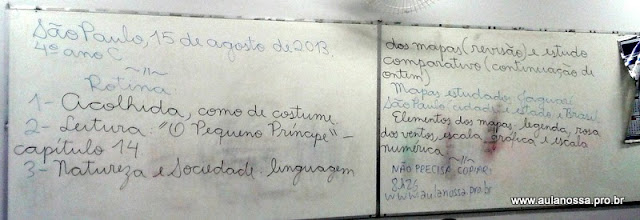 São Paulo, 15 de agosto de 2013.
4º ano C
~//~
Rotina
1- Acolhida, como de costume.
2- Leitura: "O Pequeno Príncipe" -
capítulo 14
3- Natureza e Sociedade: linguagem
dos mapas (revisão) e estudo
comparativo (continuação de
ontem)
Mapas estudados: Jaguaré,
São Paulo (cidade e estado) e Brasil.
Elementos dos mapas: legenda, rosa
dos ventos, escala gráfica e escala
numérica.
~//~
NÃO PRECISA COPIAR:
www.aulanossa.pro.br
www.aulanossa.pro.br